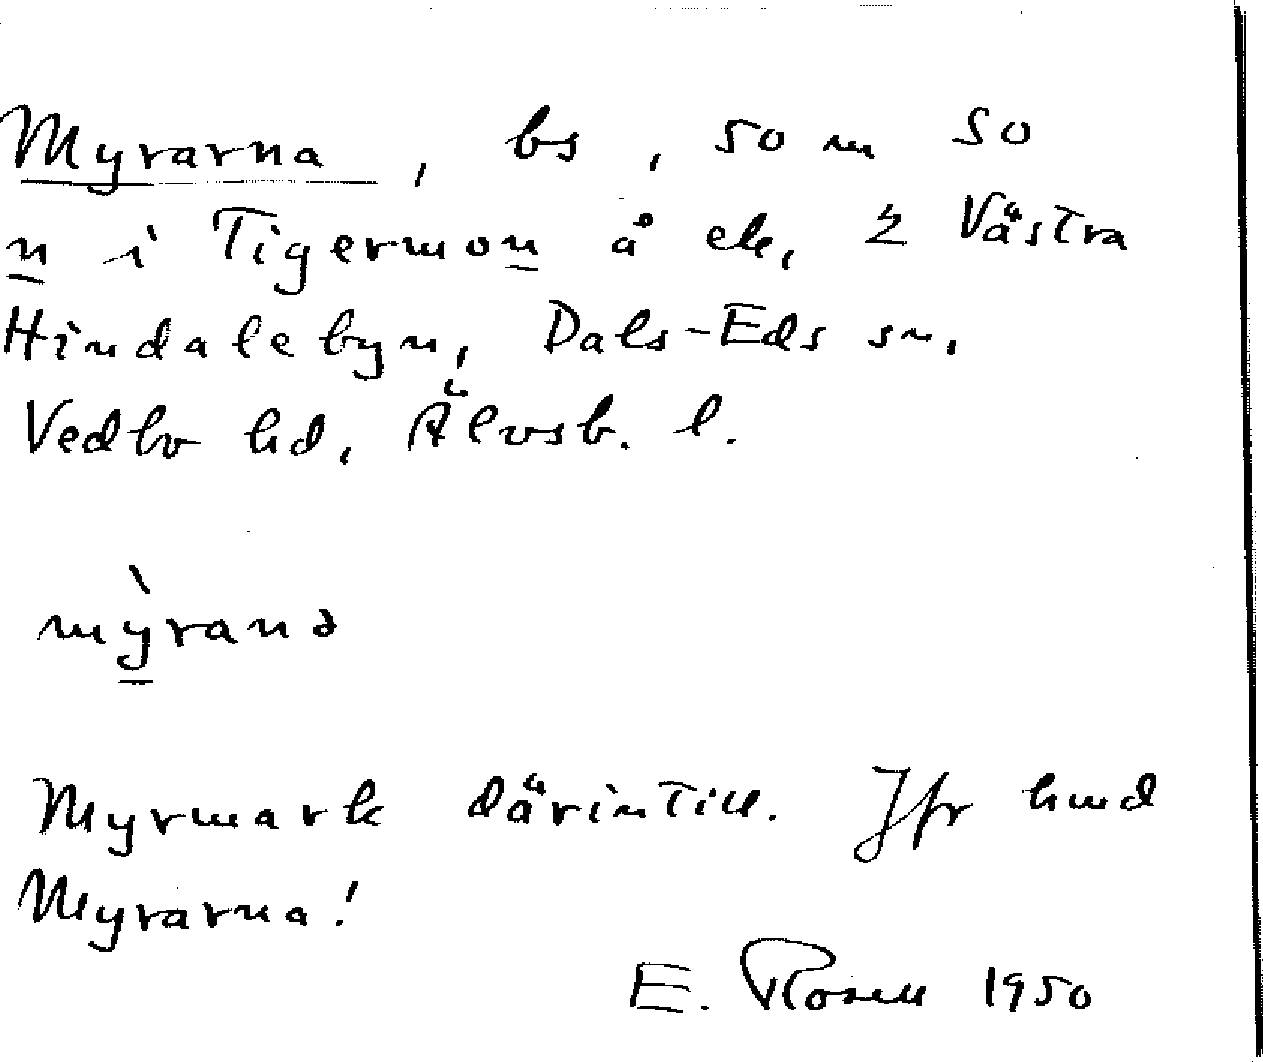 Myrarna, bs, 50 m SO
n i Tigermon å ek, 2 Västra
Hindalebyn, Dals-Eds sn,
Vedbo hd, Älvsb. l.
mỳranə
Myrmark därintill. Jfr hmd
Myrarna!
E. Rosell 1950